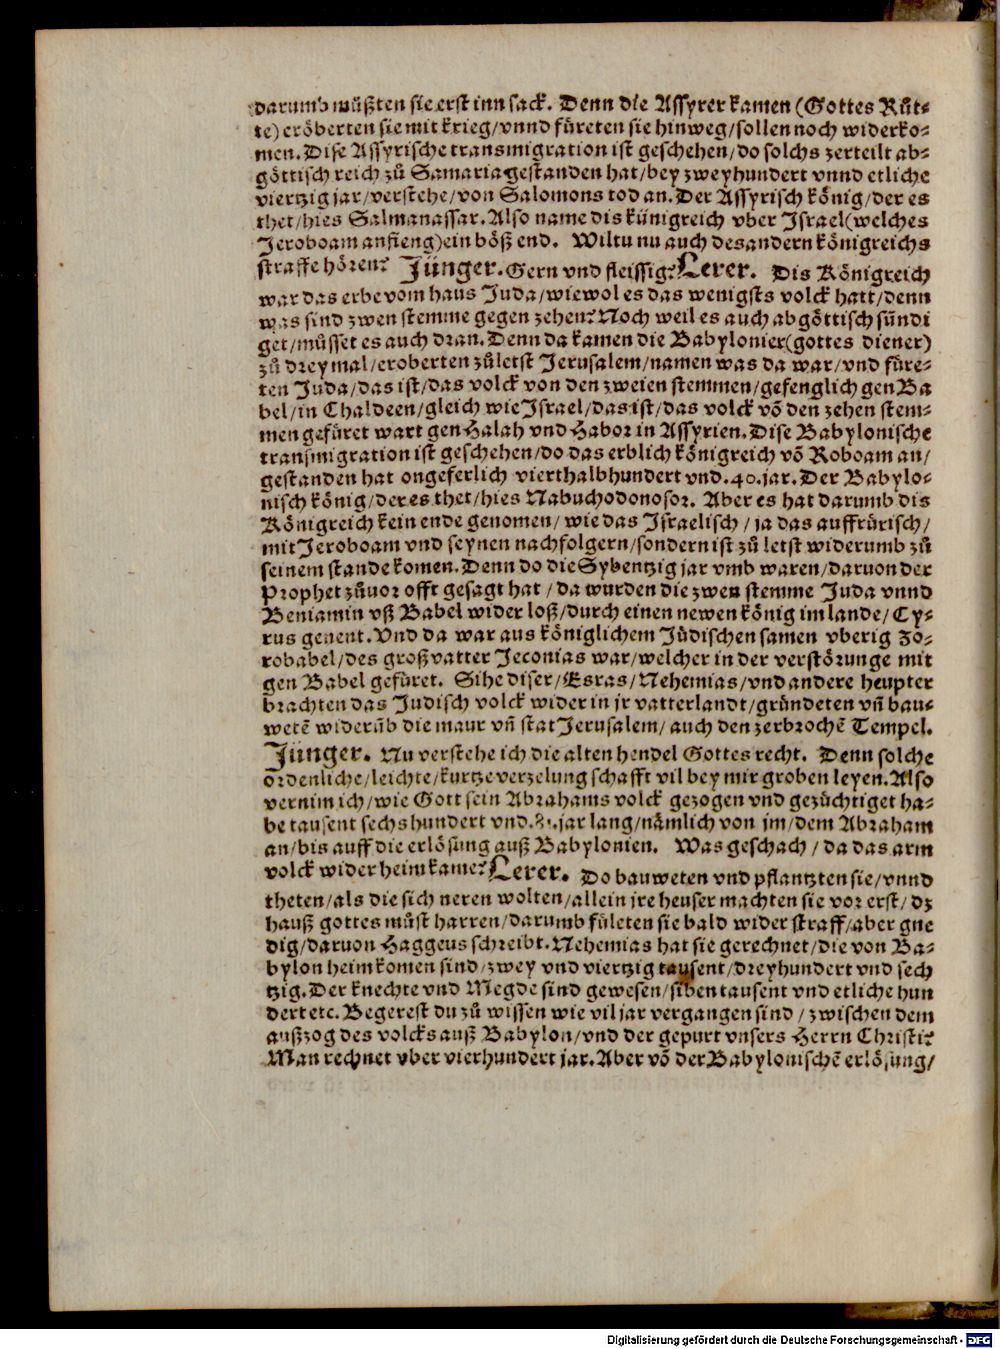 darumb můßten sie erst inn sack. Denn die Assyrer kamen (Gottes Růt⸗
te) eröberten sie mit krieg/ vnnd füreten sie hinweg/ sollen noch widerko⸗
men. Dise Assyrische transmigration ist geschehen/ do solchs zerteilt ab⸗
göttisch reich zů Samaria gestanden hat/ bey zweyhundert vnnd etliche
viertzig jar/ verstehe/ von Salomons tod an. Der Assyrisch könig/ der es
thet/ hies Salmanassar. Also name dis künigreich vber Israel (welches
Jeroboam anfieng) ein böß end. Wiltu nu auch des andern königreichs
straffe hören? Jünger. Gern vnd fleissig? Lerer. Dis Königreich
war das erbe vom haus Juda/ wiewol es das wenigsts volck hatt/ denn
was sind zwen stemme gegen zehen? Noch weil es auch abgöttisch sündi
get/ můsset es auch dran. Denn da kamen die Babylonier (gottes diener)
zů dreymal/ eroberten zůletst Jerusalem/ namen was da war/ vnd füre⸗
ten Juda/ das ist/ das volck von den zweien stemmen/ gefenglich gen Ba
bel/ in Chaldeen/ gleich wie Israel/ das ist/ das volck võ den zehen stem⸗
men gefüret wart gen Halah vnd Habor in Assyrien. Dise Babylonische
transmigration ist geschehen/ do das erblich königreich võ Roboam an/
gestanden hat ongeferlich vierthalbhundert vnd .40. jar. Der Babylo⸗
nisch könig/ der es thet/ hies Nabuchodonosor. Aber es hat darumb dis
Königreich kein ende genomen/ wie das Israelisch/ ja das auffrürisch/
mit Jeroboam vnd seynen nachfolgern/ sondern ist zů letst widerumb zů
seinem stande komen. Denn do die Sybentzig jar vmb waren/ daruon der
Prophet zůuor offt gesagt hat/ da wurden die zwen stemme Juda vnnd
Beniamin vß Babel wider loß/ durch einen newen könig im lande/ Cy⸗
rus genent. Vnd da war aus königlichem Jüdischen samen vberig Zo⸗
robabel/ des großvatter Jeconias war/ welcher in der verstörunge mit
gen Babel gefüret. Sihe diser/ Esras/ Nehemias/ vnd andere heupter
brachten das Judisch volck wider in jr vatterlandt/ gründeten vñ bau⸗
wetẽ widerũb die maur vñ stat Jerusalem/ auch den zerbrochẽ Tempel.
Jünger. Nu verstehe ich die alten hendel Gottes recht. Denn solche
ordenliche/ leichte/ kurtze verzelung schafft vil bey mir groben leyen. Also
vernim ich/ wie Gott sein Abrahams volck gezogen vnd gezüchtiget ha⸗
be tausent sechshundert vnd .81. jar lang/ nämlich von jm/ dem Abraham
an/ bis auff die erlösung auß Babylonien. Was geschach/ da das arm
volck wider heim kame? Lerer. Do bauweten vnd pflantzten sie/ vnnd
theten/ als die sich neren wolten/ allein jre heuser machten sie vor erst/ dz
hauß gottes můst harren/ darumb fületen sie bald wider straff/ aber gne
dig/ daruon Haggeus schreibt. Nehemias hat sie gerechnet/ die von Ba⸗
bylon heim komen sind/ zwey vnd viertzig tausent/ dreyhundert vnd sech
tzig. Der knechte vnd Megde sind gewesen/ siben tausent vnd etliche hun
dert etc. Begerest du zů wissen wie vil jar vergangen sind/ zwischen dem
außzog des volcks auß Babylon/ vnd der gepurt vnsers Herrn Christi?
Man rechnet vber vierhundert jar. Aber võ der Babylonischẽ erlösung/
Digitalisierung gefördert durch die Deutsche Forschungsgemeinschaft - DFG